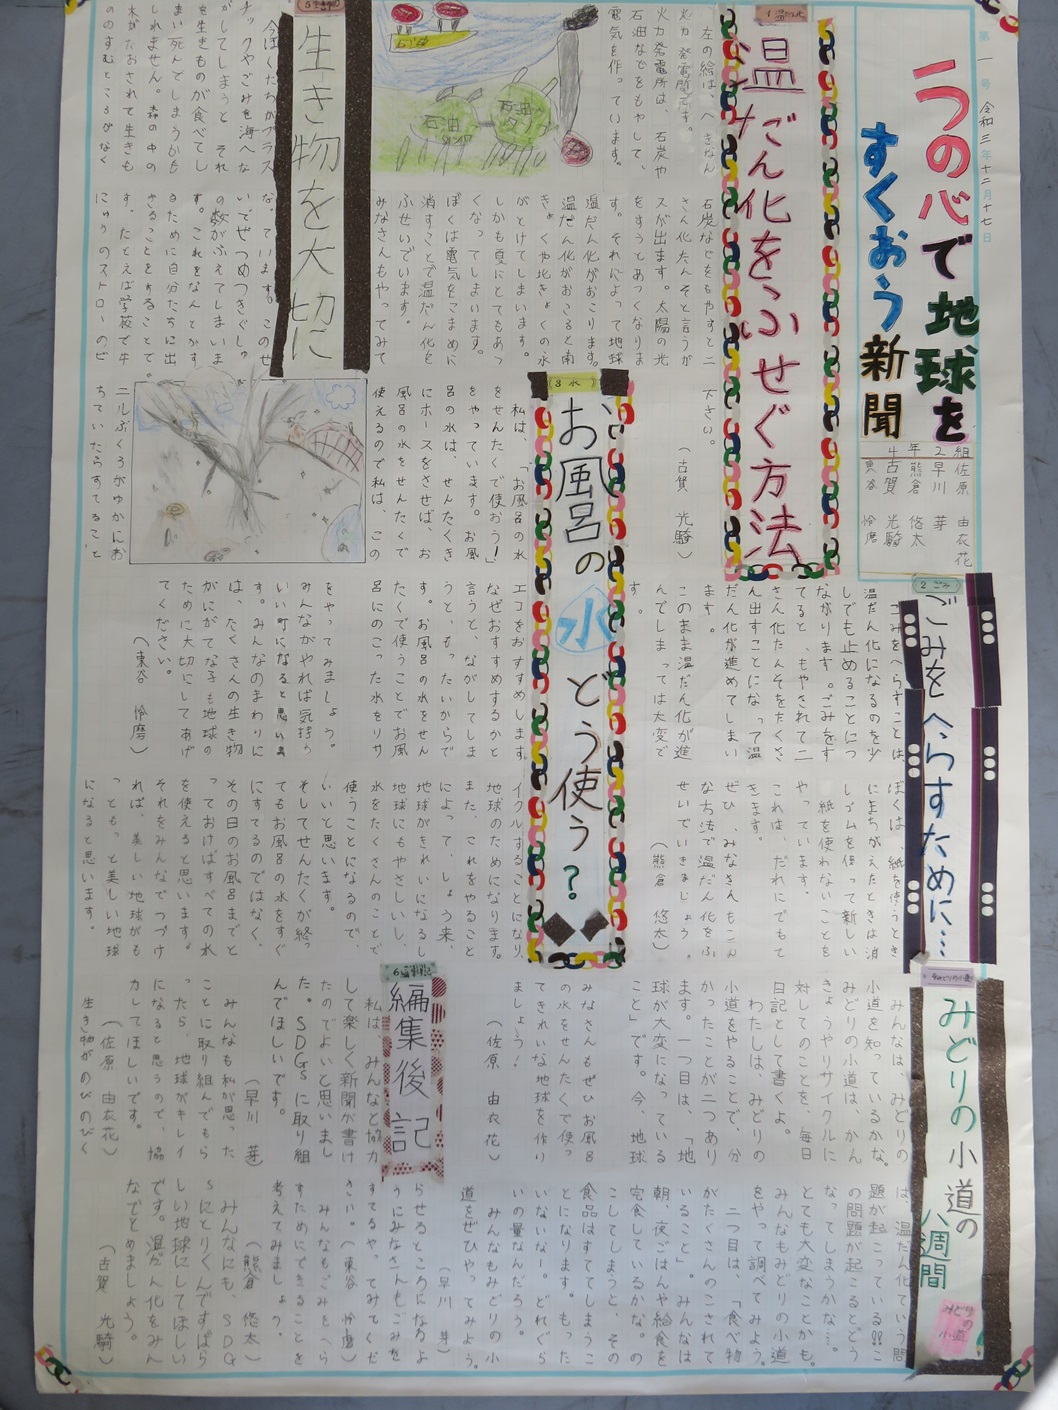 第一号 令和三年十二月十七日
一つの心で地球を
すくおう新聞
4年2組
佐原 由衣花
早川 芽
熊倉 悠太
古賀 光騎
東谷 怜磨
1 温だん化
温だん化をふせぐ方法
左の絵は、
火力発電所です。
火力発電所は、石炭や
石油などをもやして、
電気を作っています。
石油
石油タンク
石炭などをもやすと二
さん化たんそと言うガ
スが出ます。太陽の光
をすうとあつくなりま
す。それによって地球
温だん化がおこります。
温だん化がおこると南
きょくや北きょくの水
がとけてしまいます。
しかも夏にとてもあつ
くなってしまいます。
ぼくは電気をこまめに
消すことで温だん化を
ふせいでいます。
みなさんもやってみて
下さい。
(古賀 光騎)
2 ごみ
ごみをへらすために…
ごみをへらすことは、
温だん化になるのを少
しでも止めることにつ
ながります。ごみをす
てると、もやされて二
さん化たんそをたくさ
ん出すことになって温
だん化が進めてしまい
ます。
このまま温だん化が進
んでしまっては大変で
す。
ぼくは、紙を使うとき
にまちがえたときは消
しゴムを使って新しい
紙を使わないことを
やっています。
これは、だれにでもで
きます。
ぜひ、みなさんもこん
な方法で温だん化をふ
せいでいきましょう。
(熊倉 悠太)
3 水
お風呂の水どう使う?
私は、「お風呂の水
をせんたくで使おう!」
をやっています。お風
呂の水は、せんたくき
にホースをさせば、お
風呂の水をせんたくで
使えるので私は、この
エコをおすすめします。
なぜおすすめするかと
言うと、ながしてしま
うと、もったいからで
す。お風呂の水をせん
たくで使うことでお風
呂にのこった水をリサ
イクルすることになり、
地球のためになります。
また、これをやること
によって、しょう来、
地球がきれいになるし
地球にもやさしいし、
水をたくさんのことで
使うことになるので
いいと思います。
そしてせんたくが終っ
てもお風呂の水をすぐ
にすてるのではなく、
その日のお風呂までと
っておけばすべての水
を使えると思います。
それをみんなでつづけ
れば、美しい地球がも
っともっと美しい地球
になると思います。
みなさんもぜひお風呂
の水をせんたくで使っ
てきれいな地球を作り
ましょう!
(佐原 由衣花)
4 みどりの小道
みどりの小道の八週間
みどりの小道
みんなは、みどりの
小道を知っているかな。
みどりの小道は、かん
きょうやリサイクルに
対してのことを、毎日
日記として書くよ。
わたしは、みどりの
小道をやることで、分
かったことが二つあり
ます。一つ目は、「地
球が大変になっている
こと」です。今、地球
は、温だん化という問
題が起こっている!!こ
の問題が起こるとどう
なってしまうかな…。
とても大変なことかも。
みんなもみどりの小道
をやって調べてみよう。
二つ目は、「食べ物
がたくさんのこされて
いること」。みんなは
朝、夜ごはんや給食を
完食しているかな。の
こしてしまうと、その
食品はすててしまうこ
とになります。もった
いないなー。どれぐら
いの量なんだろう。
みんなもみどりの小
道をぜひやってみよう。
(早川 芽)
5 生き物
生き物を大切に
今ぼくたちがプラス
チックやごみを海へな
がしてしまうと、それ
を生きものが食べてし
まい死んでしまうかも
しれません。森の中の
木がたおされて生きも
ののすむところがなく
な。ています。このせ
いでぜつめつきぐしゅ
の数がふえてしまいま
す。これをなんとかす
るために自分たちに出
きることをすることで
す。たとえば学校で牛
にゅうのストローのビ
ニルぶくろがゆかにお
ちていたらすてること
をやってみましょう。
みんながやれば気持ち
いい町になると思いま
す。みんなのまわりに
は、たくさんの生き物
がにがてな子も地球の
ために大切にしてあげ
てください。
(東谷 怜磨)
6 編集後記
編集後記
私は、みんなと協力
して楽しく新聞が書け
たのでよいと思いまし
た。SDGsに取り組
んでほしいです。
(早川 芽)
みんなも私が思った
ことに取り組んでもら
ったら、地球がキレイ
になると思うので、協
力してほしいです。
(佐原 由衣花)
生き物がのびのびく
らせるところになるよ
うにみなさんもごみを
すてるやってみてくだ
さい。(東谷 怜磨)
みんなもごみをへら
すためにできることを
考えてみましょう。
(熊倉 悠太)
みんなにも、SDG
sにとりくんですばら
しい地球にしてほしい
です。温だん化をみん
なでとめましょう。
(古賀 光騎)